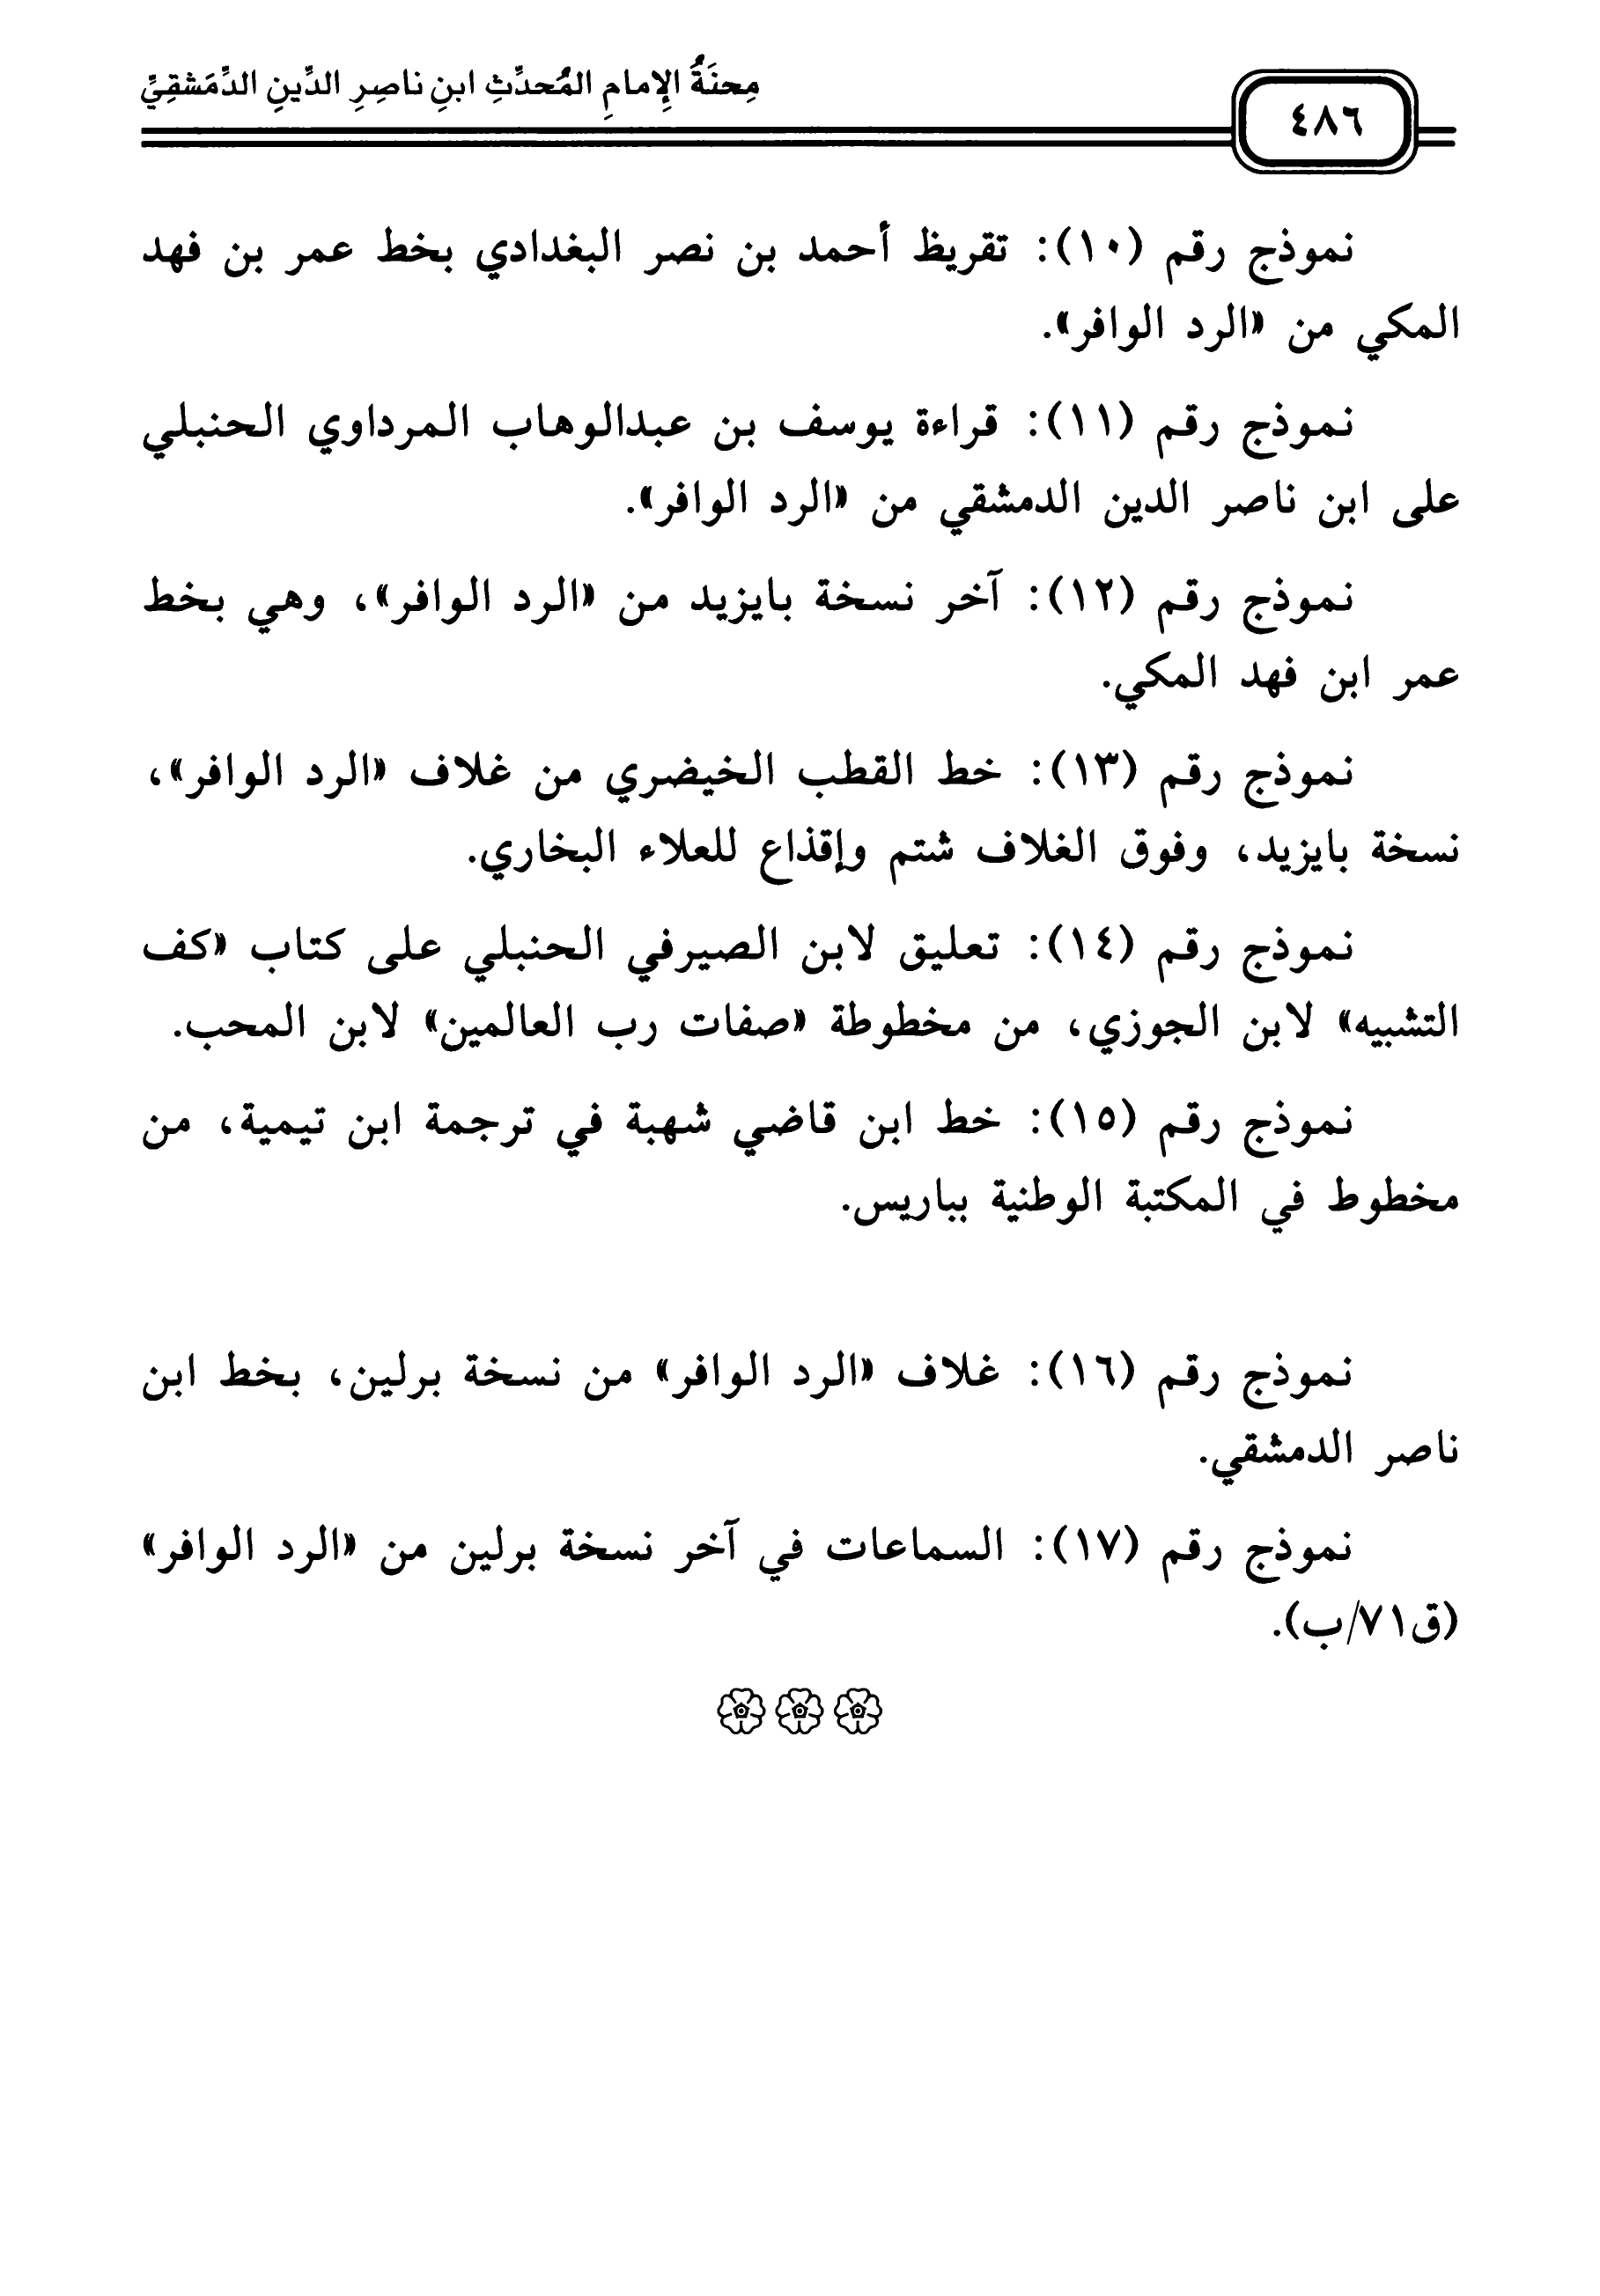 مِحنَةُ الإِمامِ المُحدِّثِ ابنِ ناصِرِ الدِّينِ الدِّمَشقِيِّ
٤٨٦
نموذج رقم (١٠): تقريظ أحمد بن نصر البغدادي بخط عمر بن فهد
المكي من «الرد الوافر».
نموذج رقم (١١): قراءة يوسف بن عبدالوهاب المرداوي الحنبلي
على ابن ناصر الدين الدمشقي من «الرد الوافر».
نموذج رقم (١٢): آخر نسخة بايزيد من «الرد الوافر»، وهي بخط
عمر ابن فهد المكي.
نموذج رقم (١٣): خط القطب الخيضري من غلاف «الرد الوافر»،
نسخة بايزيد، وفوق الغلاف شتم وإقذاع للعلاء البخاري.
نموذج رقم (١٤): تعليق لابن الصيرفي الحنبلي على كتاب «كف
التشبيه» لابن الجوزي، من مخطوطة «صفات رب العالمين» لابن المحب.
نموذج رقم (١٥): خط ابن قاضي شهبة في ترجمة ابن تيمية، من
مخطوط في المكتبة الوطنية بباريس.
نموذج رقم (١٦): غلاف «الرد الوافر» من نسخة برلين، بخط ابن
ناصر الدمشقي.
نموذج رقم (١٧): السماعات في آخر نسخة برلين من «الرد الوافر»
(ق٧١/ب).